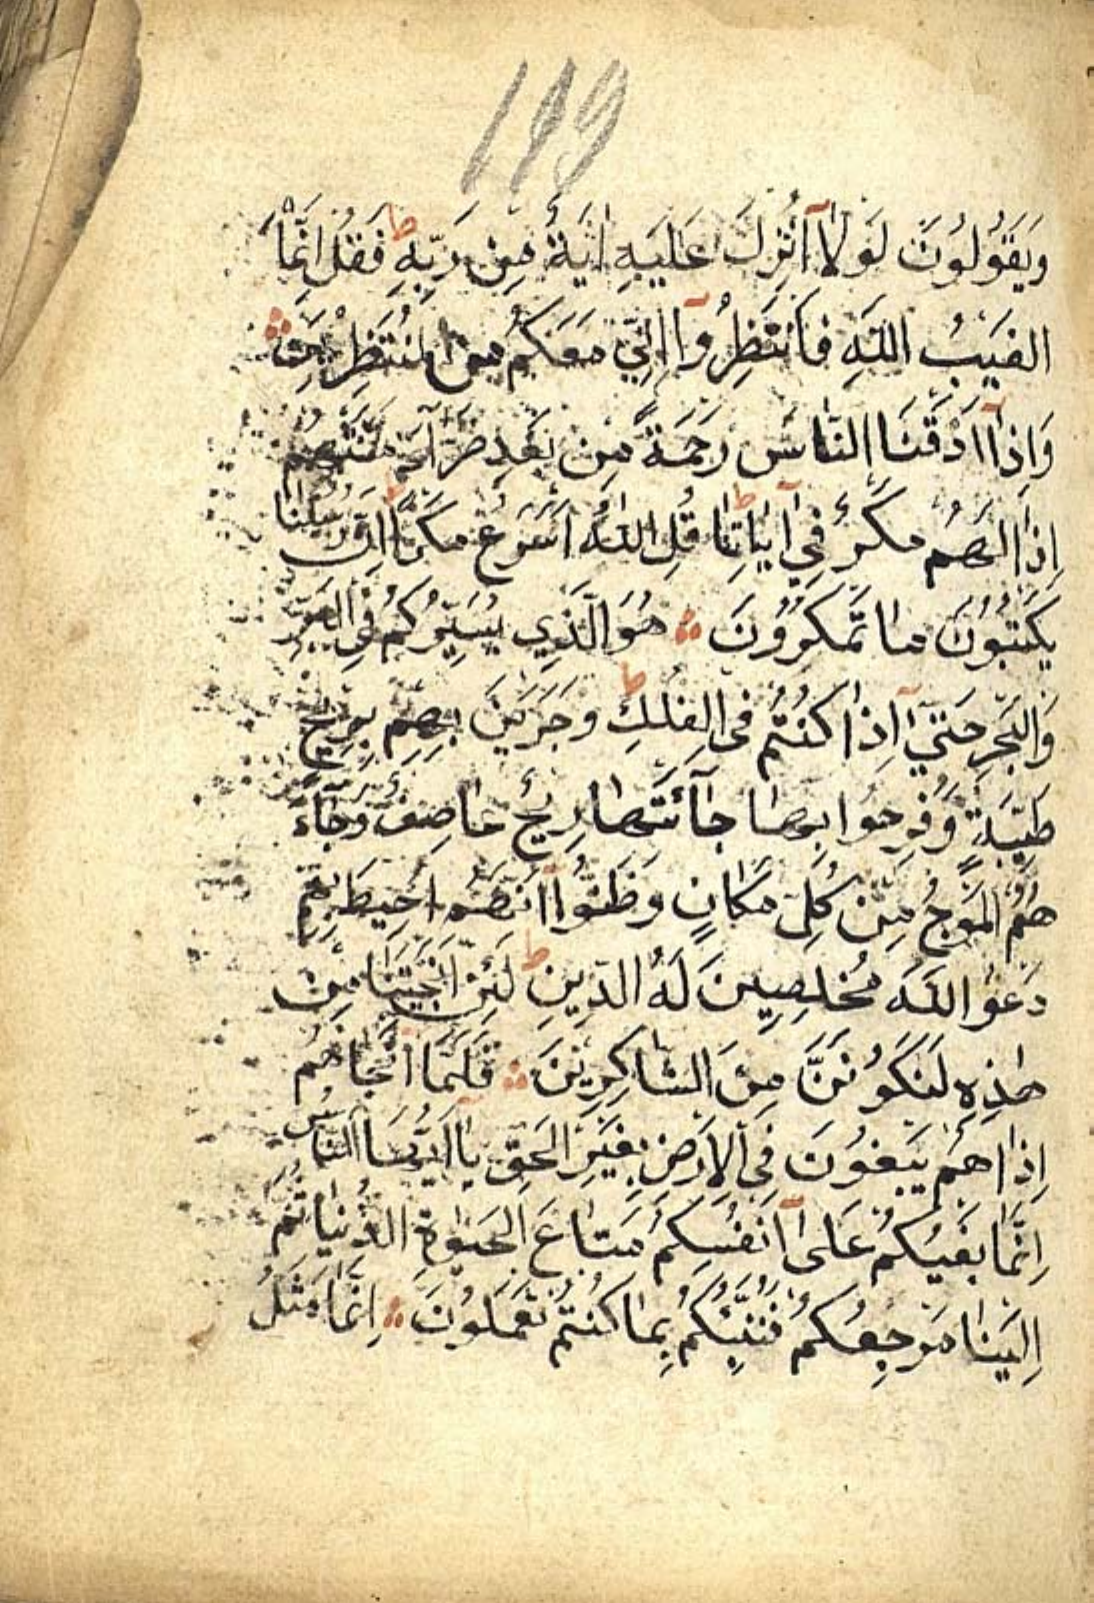 199
وَيَقُولُونَ لَوْلَاۤ اُنْزِلَ عَلَيْهِ اٰيَةٌ مِنْ رَبِّهِ ط فَقُلْ اِنَّمَا
الْغَيْبُ اللّٰهِ فَانْتَظِرُوآ اِنِّي مَعَكُمْ مِنَ الْمُنْتَظِرِينَ
وَاِذَاۤ اَذَقْنَا النَّاسَ رَحْمَةً مِنْ بَعْدِ ضَرَّآءَ مَسَّتْهُمْ
اِذَا لَهُمْ مَكْرٌ فِيۤ اٰيَاتِنَا ط قُلِ اللّٰهُ اَسْرَعُ مَكْرًا ط اِنَّ رُسُلَنَا
يَكْتُبُونَ مَا تَمْكُرُونَ هُوَ الَّذِي يُسَيِّرُكُمْ فِي الْبَرِّ
وَالْبَحْرِ حَتَّيۤ اِذَا كُنْتُمْ فِي الْفُلْكِ ط وَجَرَيْنَ بِهِمْ بِرِيحٍ
طَيِّبَةٍ وَفَرِحُوا بِهَا جَآئَتْهَا رِيحٌ عَاصِفٌ وَجَآءَ
هُمُ الْمَوْجُ مِنْ كُلِّ مَكَانٍ وَظَنُّوۤا اَنَّهُمْ اُحِيطَ بِهِمْ
دَعَوُا اللّٰهَ مُخْلِصِينَ لَهُ الدِّينَ ط لَئِنْ اَنْجَيْتَنَا مِنْ
هٰذِهِ لَنَكُونَنَّ مِنَ الشَّاكِرِينَ فَلَمَّاۤ اَنْجَاهُمْ
اِذَا هُمْ يَبْغُونَ فِي الْاَرْضِ بِغَيْرِ الْحَقِّ يَاۤ اَيُّهَا النَّاسُ
اِنَّمَا بَغْيُكُمْ عَلىۤ اَنْفُسِكُمْ مَتَاعَ الْحَيٰوةِ الدُّنْيَا ثُمَّ
اِلَيْنَا مَرْجِعُكُمْ فَنُنَبِّئُكُمْ بِمَا كُنْتُمْ تَعْمَلُونَ اِنَّمَا مَثَلُ